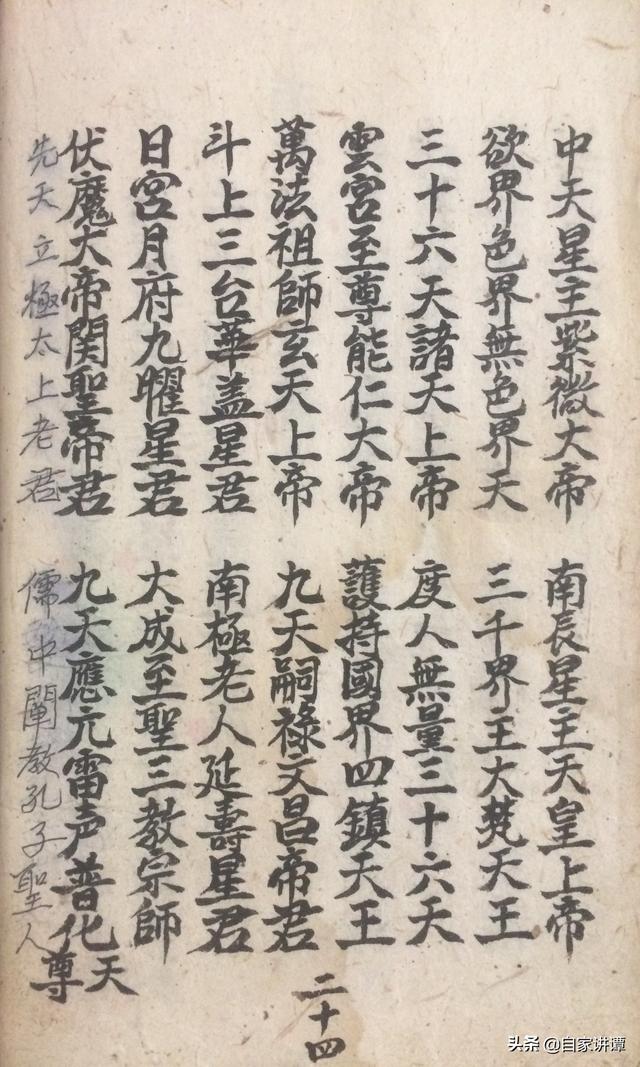 中天星主紫微大帝 南辰星主天皇上帝
欲界色界無色界天 三千界王大梵天王
三十六天諸天上帝 度人無量三十六天
雲宮至尊能仁大帝 護持國界四鎮天王
萬法祖師玄天上帝 九天嗣祿文昌帝君
斗上三台華盖星君 南極老人延壽星君
日宮月府九曜星君 大成至聖三教宗師
伏魔大帝関聖帝君 九天應元雷声普化天尊
先天立極太上老君 儒中闡教孔子聖人
二十四
头条 @自家讲谭